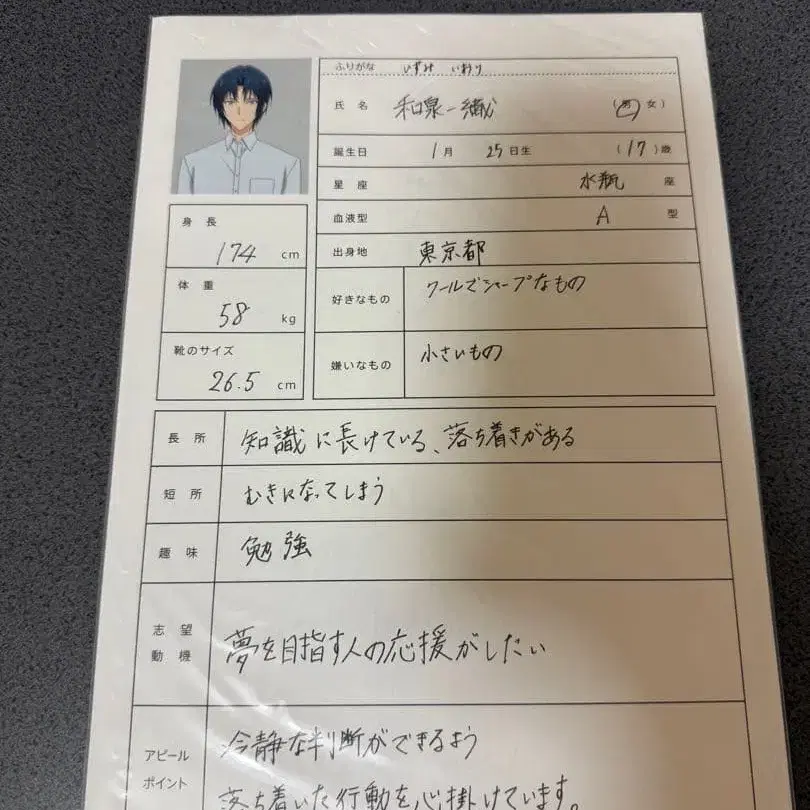 ふりがな いずみ いおり
氏名 和泉一織 （男 女）
誕生日 1月 25日生 （17）歳
星座 水瓶 座
血液型 A 型
出身地 東京都
好きなもの クールでシャープなもの
嫌いなもの 小さいもの
身長
174 cm
体重
58 kg
靴のサイズ
26.5 cm
長所 知識に長けている、落ち着きがある
短所 むきになってしまう
趣味 勉強
志望動機 夢を目指す人の応援がしたい
アピールポイント 冷静な判断ができるよう
落ち着いた行動を心掛けています。